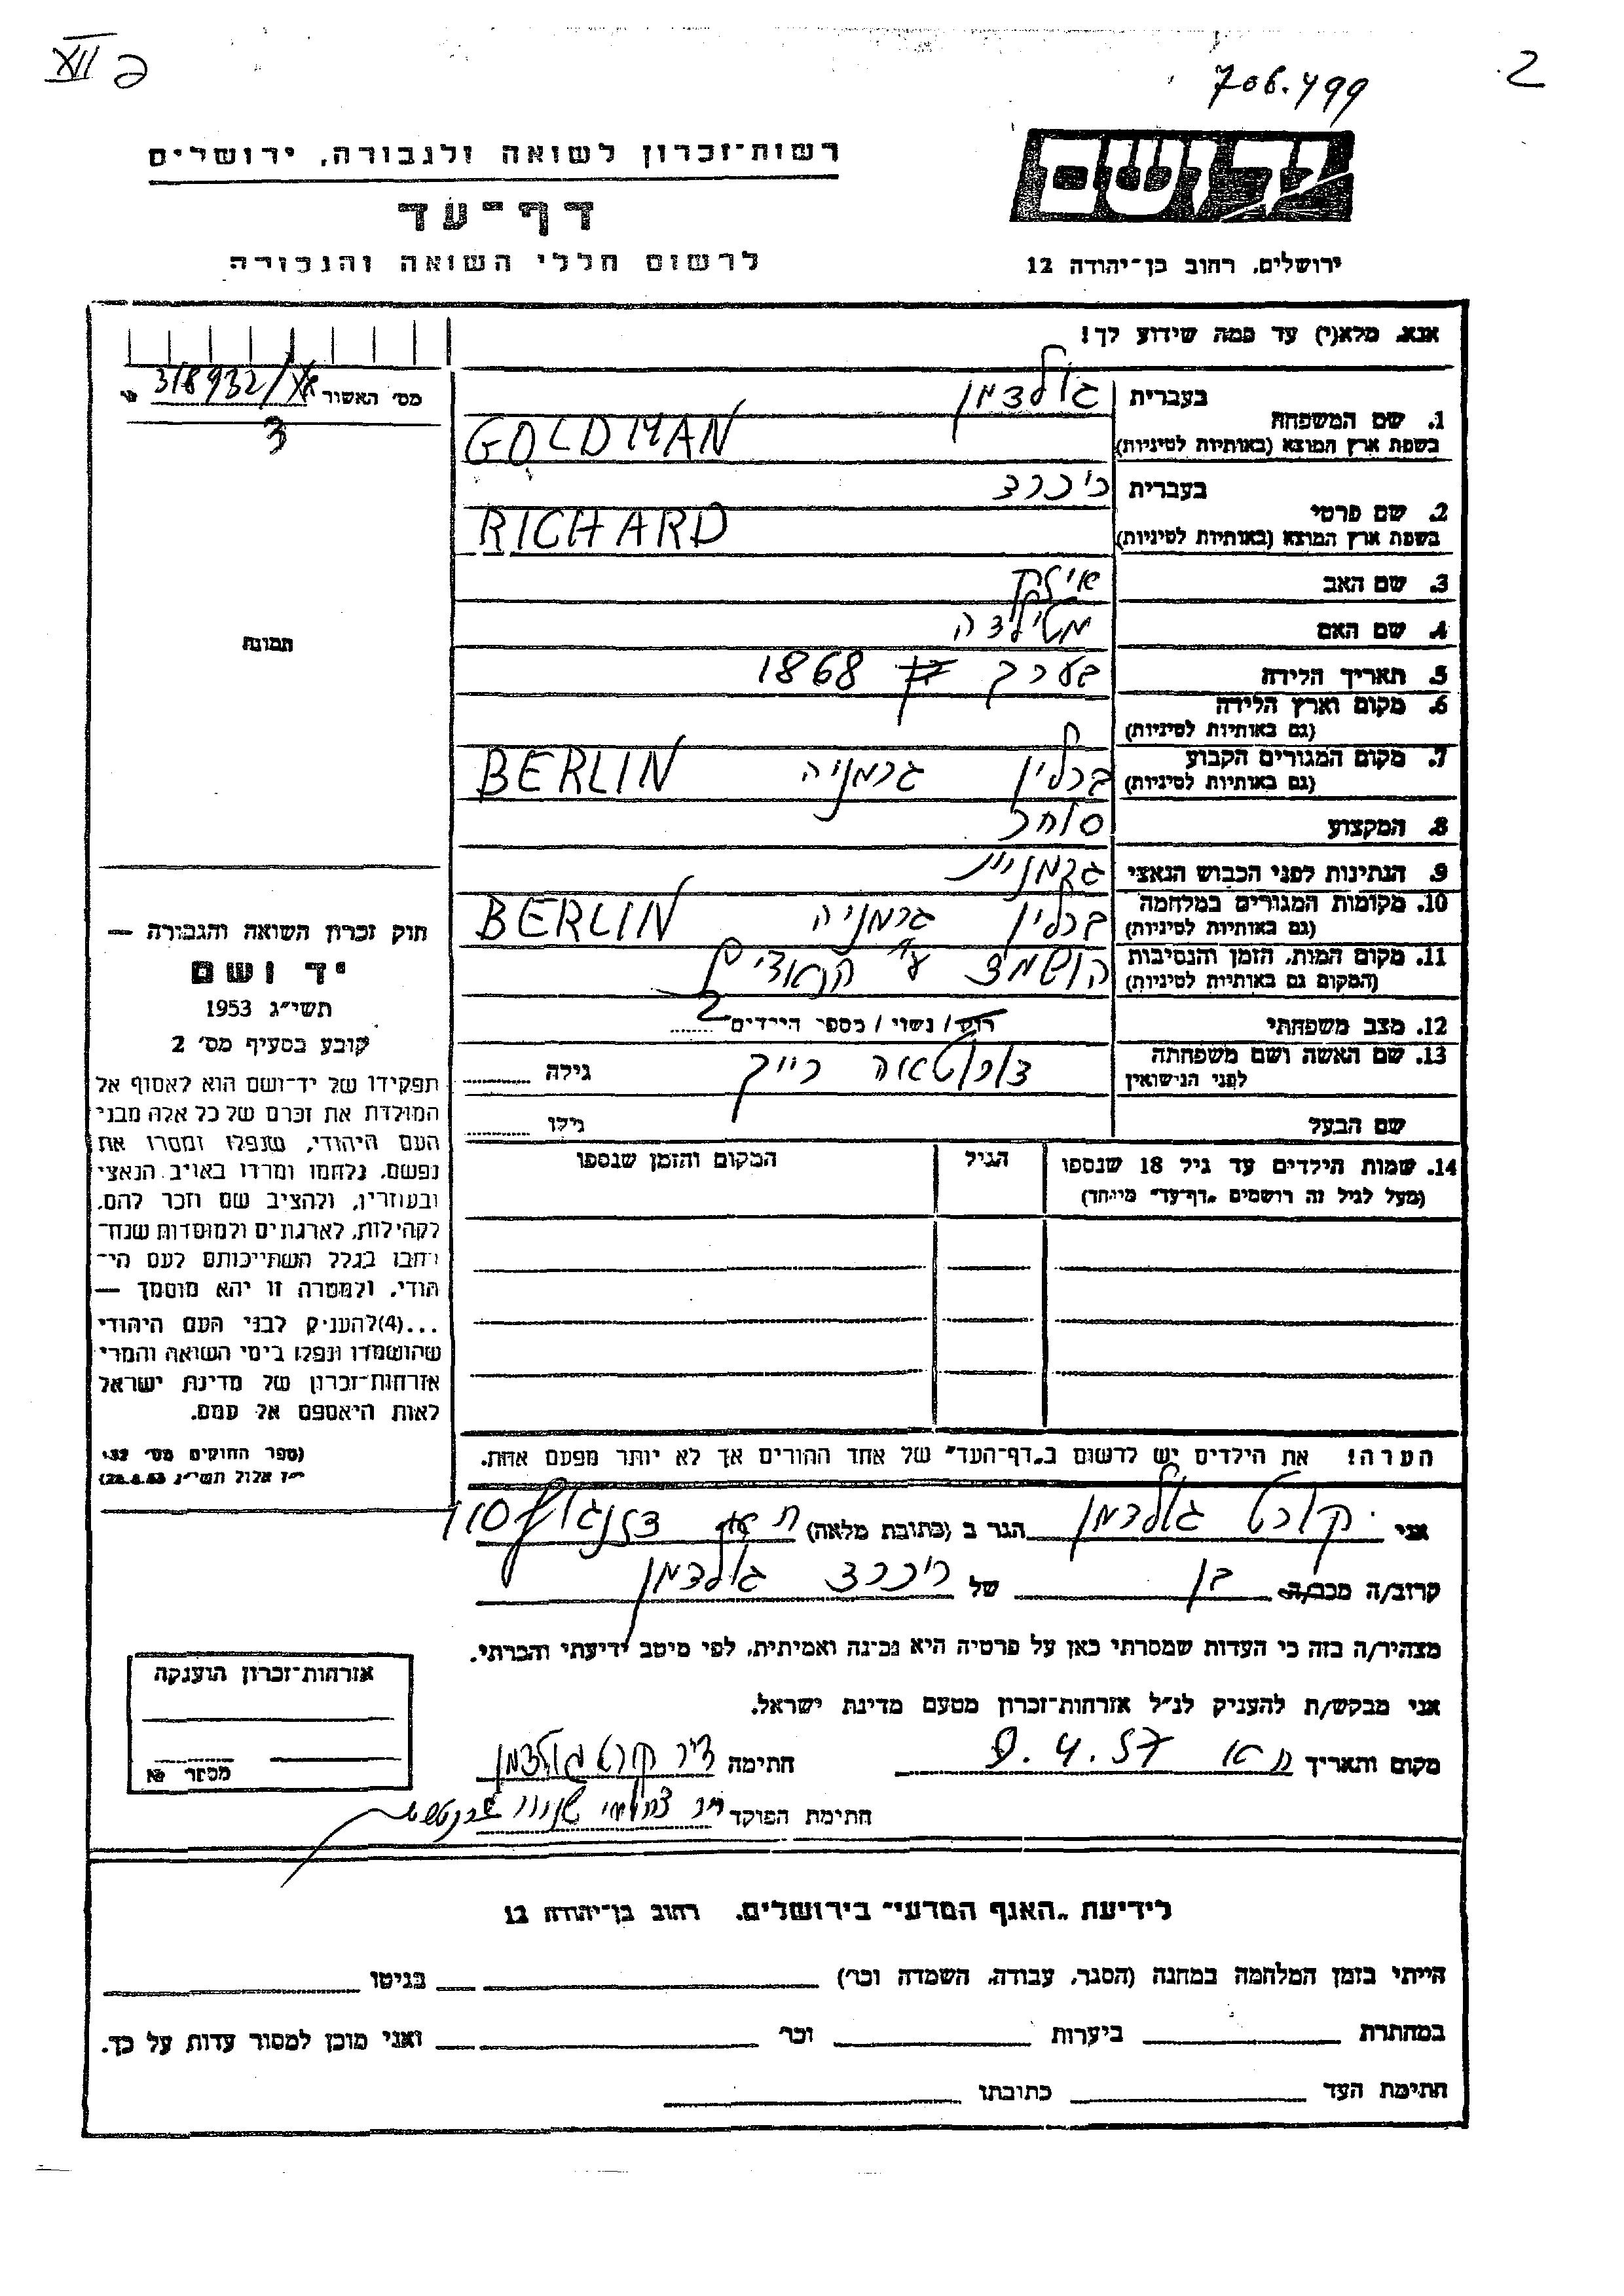 XII פ
706.499
2
רשות־זכרון לשואה ולגבורה, ירושלים
דף־עד
לרשום חללי השואה והגבורה
יד ושם
ירושלים, רחוב בן־יהודה 12
אנא, מלא(י) עד כמה שידוע לך!
מס׳ האשור 318932/
3
1. שם המשפחה בעברית גולדמן
בשפת ארץ המוצא (באותיות לטיניות) GOLDMAN
2. שם פרטי בעברית ריכרד
בשפת ארץ המוצא (באותיות לטיניות) RICHARD
3. שם האב
4. שם האם מטילדה
5. תאריך הלידה בערך 1868
6. מקום וארץ הלידה
(גם באותיות לטיניות)
7. מקום המגורים הקבוע ברלין גרמניה BERLIN
(גם באותיות לטיניות)
8. המקצוע סוחר
9. הנתינות לפני הכבוש הנאצי
10. מקומות המגורים במלחמה ברלין גרמניה BERLIN
(גם באותיות לטיניות)
11. מקום המות, הזמן והנסיבות הושמד
(המקום גם באותיות לטיניות)
12. מצב משפחתי רוק / נשוי / מספר הילדים 2
13. שם האשה ושם משפחתה רייך גילה
לפני הנישואין
שם הבעל גילו
14. שמות הילדים עד גיל 18 שנספו הגיל המקום והזמן שנספו
(מעל לגיל זה רושמים „דף־עד״ מיוחד)
הערה! את הילדים יש לרשום ב„דף־העד״ של אחד ההורים אך לא יותר מפעם אחת.
תמונה
חוק זכרון השואה והגבורה —
יד ושם
תשי״ג 1953
קובע בסעיף מס׳ 2
תפקידו של יד־ושם הוא לאסוף אל
המולדת את זכרם של כל אלה מבני
העם היהודי, שנפלו ומסרו את
נפשם, נלחמו ומרדו באויב הנאצי
ובעוזריו, ולהציב שם וזכר להם,
לקהילות, לארגונים ולמוסדות שנח־
רבו בגלל השתייכותם לעם הי־
הודי, ולמטרה זו יהא מוסמך —
...(4)להעניק לבני העם היהודי
שהושמדו ונפלו בימי השואה והמרי
אזרחות־זכרון של מדינת ישראל
לאות היאספם אל עמם.
(ספר החוקים מס׳ 132,
י״ז אלול תשי״ג 28.8.53)
אני קורט גולדמן הגר ב (כתובת מלאה) דיזנגוף 110
קרוב/ה מכר/ה בן של ריכרד גולדמן
מצהיר/ה בזה כי העדות שמסרתי כאן על פרטיה היא נכונה ואמיתית, לפי מיטב ידיעתי והכרתי.
אני מבקש/ת להעניק לנ״ל אזרחות־זכרון מטעם מדינת ישראל.
מקום ותאריך ת״א 9.4.57 חתימה ד״ר קורט גולדמן
חתימת הפוקד
אזרחות־זכרון הוענקה
מספר №
לידיעת „האגף המדעי״ בירושלים, רחוב בן־יהודה 12
הייתי בזמן המלחמה במחנה (הסגר, עבודה, השמדה וכו׳) בגיטו
במחתרת ביערות וכו׳ ואני מוכן למסור עדות על כך.
חתימת העד כתובתו